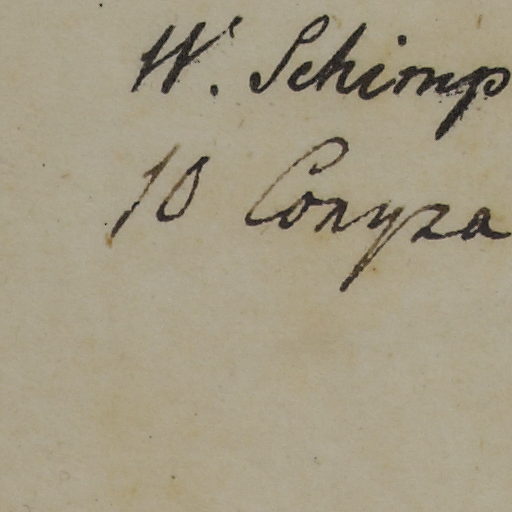 W. Schimp
10 Conyza